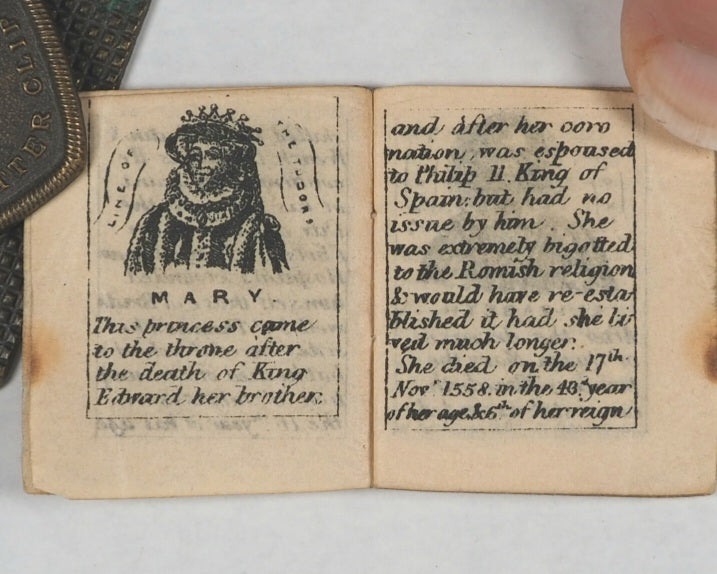 TTER CLIP
LINE OF
THE TUDORS
MARY
This princess came
to the throne after
the death of King
Edward her brother.
and after her coro
nation, was espoused
to Philip II. King of
Spain: but had no
issue by him. She
was extremely bigotted
to the Romish religion
& would have re-esta-
blished it had she li
ved much longer.
She died on the 17th
Novr 1558. in the 43d year
of her age & 6th of her reign